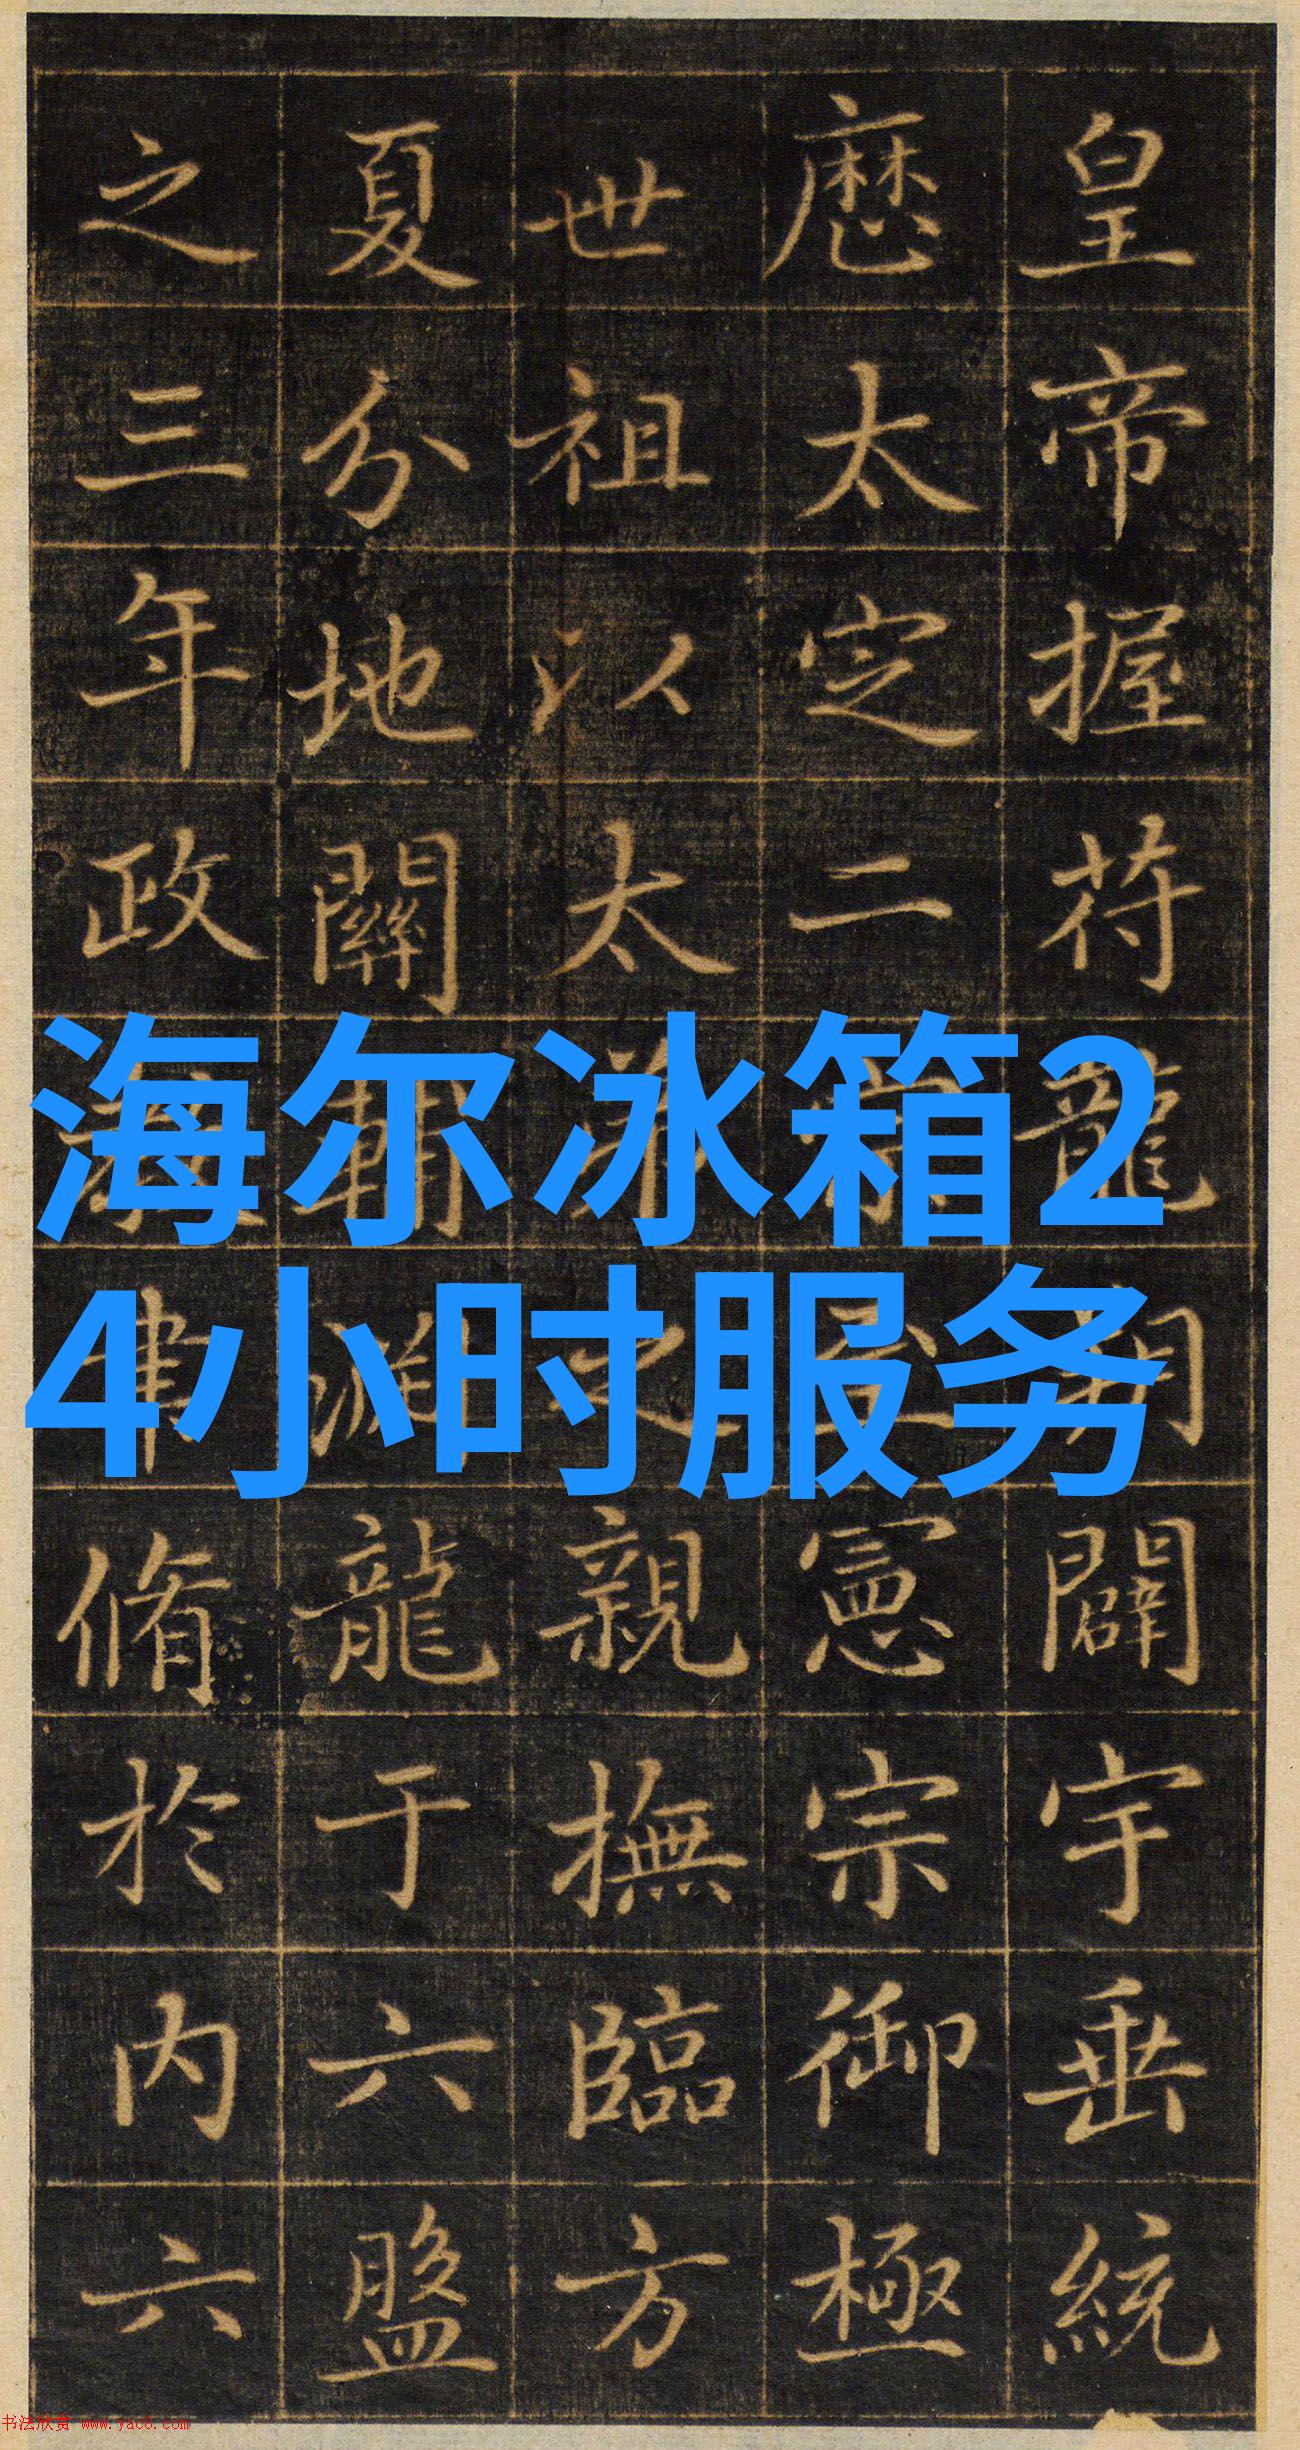 皇帝握符龍朔闢宇垂統
歷太定二宗至憲宗御極
世祖以太弟之親撫臨方
夏分地關輔淵龍于六盤
之三年政教聿脩於内六
海尔冰箱2
4小时服务
书法欣赏 www.yac8.com